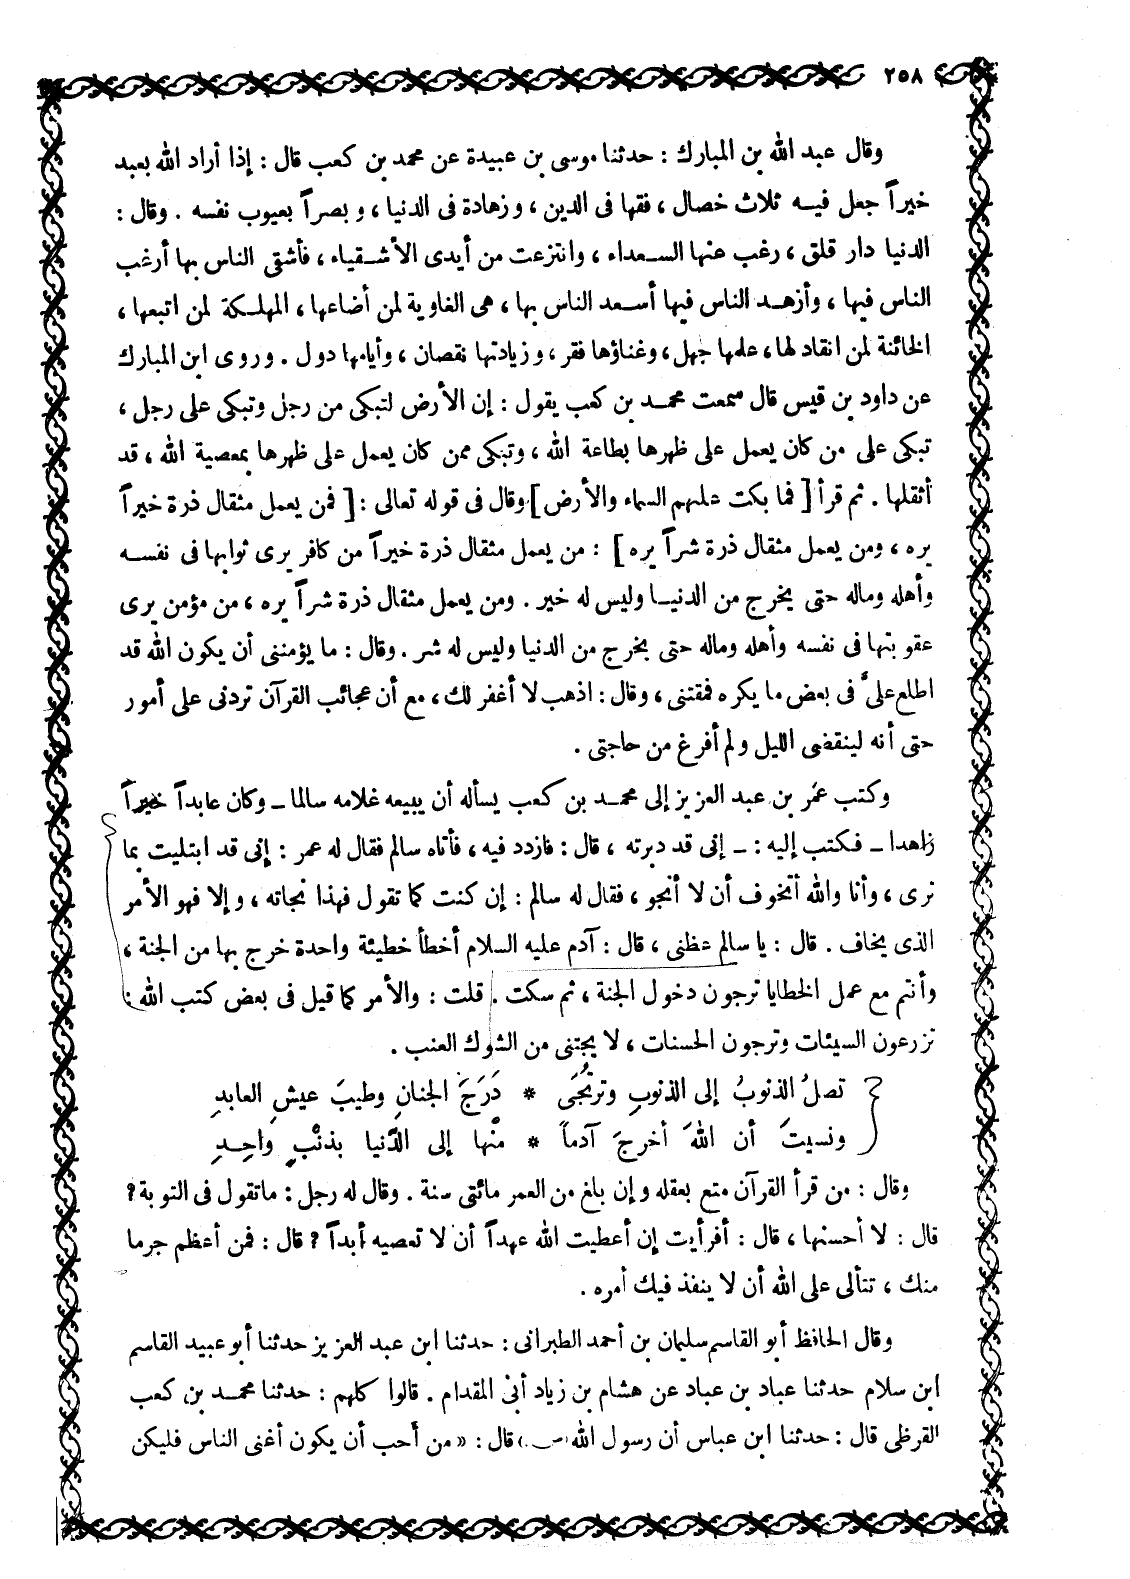 ٢٥٨
وقال عبد الله بن المبارك : حدثنا موسى بن عبيدة عن محمد بن كعب قال : إذا أراد الله بعبد
خيراً جعل فيه ثلاث خصال ، فقها فى الدين ، وزهادة فى الدنيا ، وبصراً بعيوب نفسه . وقال :
الدنيا دار قلق ، رغب عنها السعداء ، وانتزعت من أيدى الأشقياء ، فأشقى الناس بها أرغب
الناس فيها ، وأزهد الناس فيها أسعد الناس بها ، هى الغاوية لمن أضاعها ، المهلكة لمن اتبعها ،
الخائنة لمن انقاد لها ، علمها جهل ، وغناؤها فقر ، وزيادتها نقصان ، وأيامها دول . وروى ابن المبارك
عن داود بن قيس قال سمعت محمد بن كعب يقول : إن الأرض لتبكى من رجل وتبكى على رجل ،
تبكى على من كان يعمل على ظهرها بطاعة الله ، وتبكى ممن كان يعمل على ظهرها بمعصية الله ، قد
أثقلها . ثم قرأ [ فما بكت عليهم السماء والأرض ] وقال فى قوله تعالى : [ فمن يعمل مثقال ذرة خيراً
يره ، ومن يعمل مثقال ذرة شراً يره ] : من يعمل مثقال ذرة خيراً من كافر يرى ثوابها فى نفسه
وأهله وماله حتى يخرج من الدنيا وليس له خير . ومن يعمل مثقال ذرة شراً يره ، من مؤمن يرى
عقوبتها فى نفسه وأهله وماله حتى يخرج من الدنيا وليس له شر . وقال : ما يؤمننى أن يكون الله قد
اطلع علىَّ فى بعض ما يكره فمقتنى ، وقال : اذهب لا أغفر لك ، مع أن عجائب القرآن تردنى على أمور
حتى أنه لينقضى الليل ولم أفرغ من حاجتى .
وكتب عمر بن عبد العزيز إلى محمد بن كعب يسأله أن يبيعه غلامه سالما ــ وكان عابداً خيراً
زاهدا ــ فكتب إليه : ــ إنى قد دبرته ، قال : فازدد فيه ، فأتاه سالم فقال له عمر : إنى قد ابتليت بما
ترى ، وأنا والله أتخوف أن لا أنجو ، فقال له سالم : إن كنت كما تقول فهذا نجاته ، وإلا فهو الأمر
الذى يخاف . قال : يا سالم عظنى ، قال : آدم عليه السلام أخطأ خطيئة واحدة خرج بها من الجنة ،
وأنتم مع عمل الخطايا ترجون دخول الجنة ، ثم سكت . قلت : والأمر كما قيل فى بعض كتب الله :
تزرعون السيئات وترجون الحسنات ، لا يجتنى من الشوك العنب .
تصلُ الذنوبُ إلى الذنوبِ وترتُجَى * دَرَجَ الجنانِ وطيبَ عيشِ العابدِ
ونسيتَ أن اللهَ أخرجَ آدماً * منْها إلى الدَّنيا بذنْبٍ واحِدِ
وقال : من قرأ القرآن متع بعقله وإن بلغ من العمر مائتى سنة . وقال له رجل : ماتقول فى التوبة ؟
قال : لا أحسنها ، قال : أفرأيت إن أعطيت الله عهداً أن لا تعصيه أبداً ؟ قال : فمن أعظم جرما
منك ، تتألى على الله أن لا ينفذ فيك أمره .
وقال الحافظ أبو القاسم سليمان بن أحمد الطبرانى : حدثنا ابن عبد العزيز حدثنا أبو عبيد القاسم
ابن سلام حدثنا عباد بن عباد عن هشام بن زياد أبى المقدام . قالوا كلهم : حدثنا محمد بن كعب
القرظى قال : حدثنا ابن عباس أن رسول الله (ص) قال : « من أحب أن يكون أغنى الناس فليكن